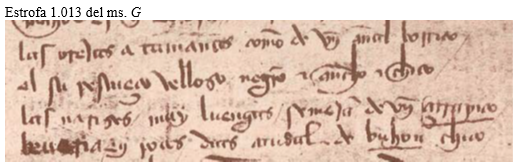 Estrofa 1.013 del ms. G
las orejas a tamañas como de vn añal borrico
el su pescueço velloso negro e ancho e chico
las narizes muy luengas semeja de vn
pocos dias de buhon chico